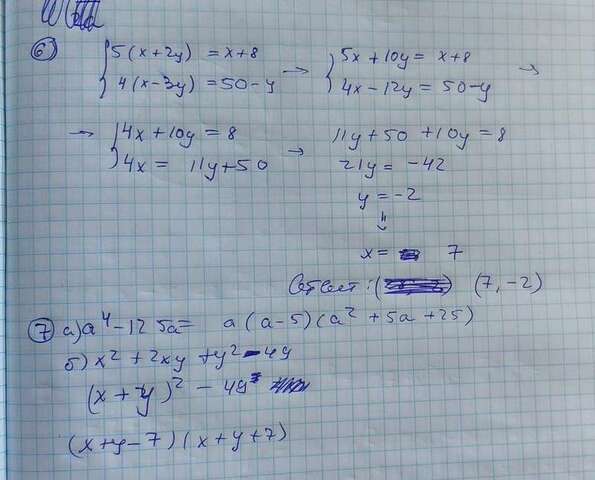 6) { 5(x+2y) = x+8 → { 5x+10y = x+8 →
4(x-3y) = 50-y 4x-12y = 50-y
→ { 4x+10y = 8 → 11y+50+10y = 8
4x = 11y+50 21y = -42
y = -2
⇓
x = 7
Ответ: (7, -2)
7) а) a⁴-125a = a(a-5)(a²+5a+25)
б) x²+2xy+y²-49
(x+y)²-49
(x+y-7)(x+y+7)